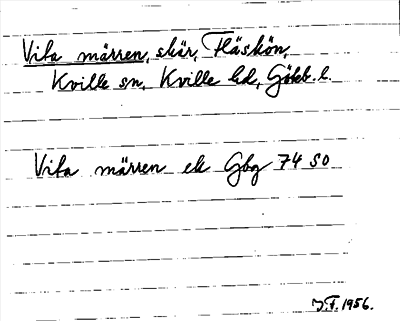 Vita märren, skär, Fläskön,
Kville sn, Kville hd, Göteb. l.
Vita märren ek Gbg 74 SO
J.F. 1956.